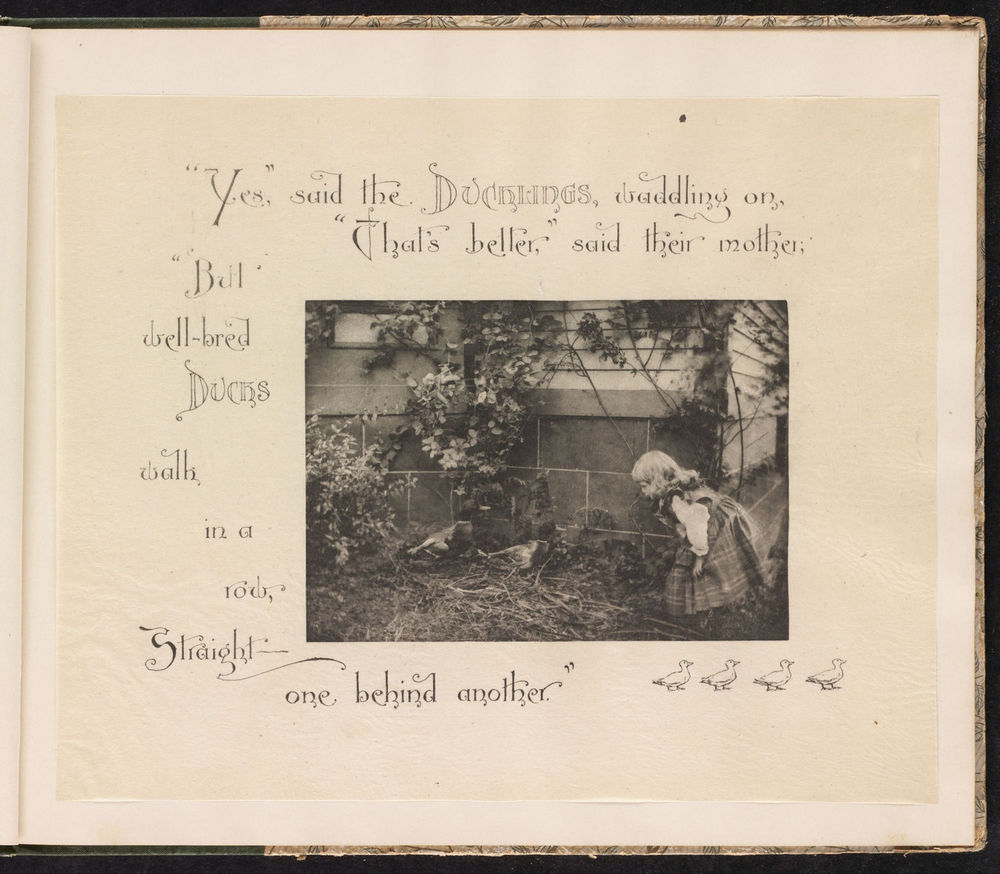 "Yes," said the Ducklings, waddling on,
"That's better," said their mother;
"But
well-bred
Ducks
walk
in a
row,
Straight—
one behind another."